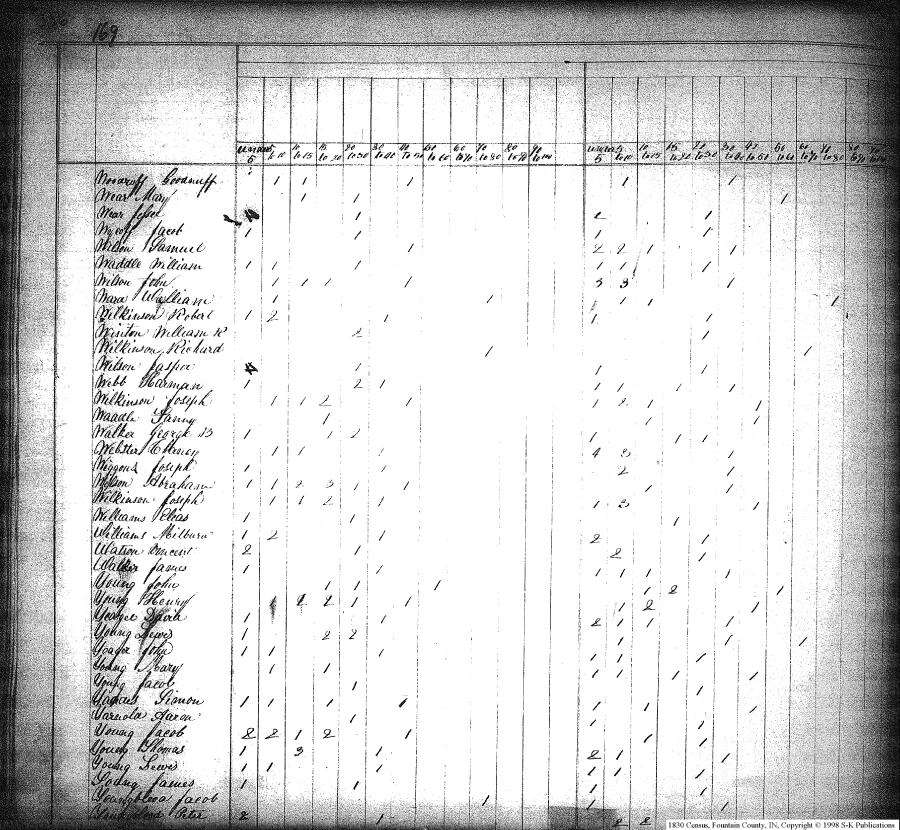 169
under 5 5 to 10 10 to 15 15 to 20 20 to 30 30 to 40 40 to 50 50 to 60 60 to 70 70 to 80 80 to 90 90 to 100 under 5 5 to 10 10 to 15 15 to 20 20 to 30 30 to 40 40 to 50 50 to 60 60 to 70 70 to 80 80 to 90
Woodruff Goodnuff 1 1 1 1 1
Wear Mary 1 1 1
Wear Jesse 4 1 2 1
Wycoff Jacob 1 1 1 1
Wilson Samuel 1 2 2 1 1
Waddle William 1 1 1 1 1 1
Wilson John 1 1 1 1 1 3 3 1
William 1 1 1 1 1
Wilkinson Robert 1 2 1 1 1
Winton William R 2 1
Wilkinson Richard 1 1
Wilson Jasper 4 1 1 1
Webb Harman 1 2 1 1 1 1 1
Wilkinson Joseph 1 1 2 1 1 2 1 1
Waddle Fanny 1 1 1
Walker George B 1 1 2 1 1 1
Webster 1 1 1 4 3 1
Wiggons Joseph 1 1 2 1
Wilson Abraham 1 1 2 3 1 1 1 1
Wilkinson Joseph 1 1 1 2 1 1 3 1
Williams Elias 1 1 1
Williams Milburn 1 2 1 2 1
Watson Vincent 2 1 2 1
Walker James 1 1 1 1 1
Young John 1 1 1 1 2 1
Young Henry 1 2 1 1 1 2 1
Yeager David 1 1 2 1 1 1
Young Lewis 1 2 2 1 1 1
Yeager John 1 1 1 1 1 1
Young Mary 1 1 1 1 1 1
Young Jacob 1 1
Simon 1 1 1 1 1 1 1
Aaron 1 1
Young Jacob 2 2 1 2 1 1 1
Thomas 1 3 1 2 1 1
Young Lewis 1 1 1 1 1 1
Young James 1 1 1 1
Youngblood Jacob 1 1 1
Youngblood Peter 2 1 2 2
1830 Census, Fountain County, IN, Copyright © 1998 S-K Publications